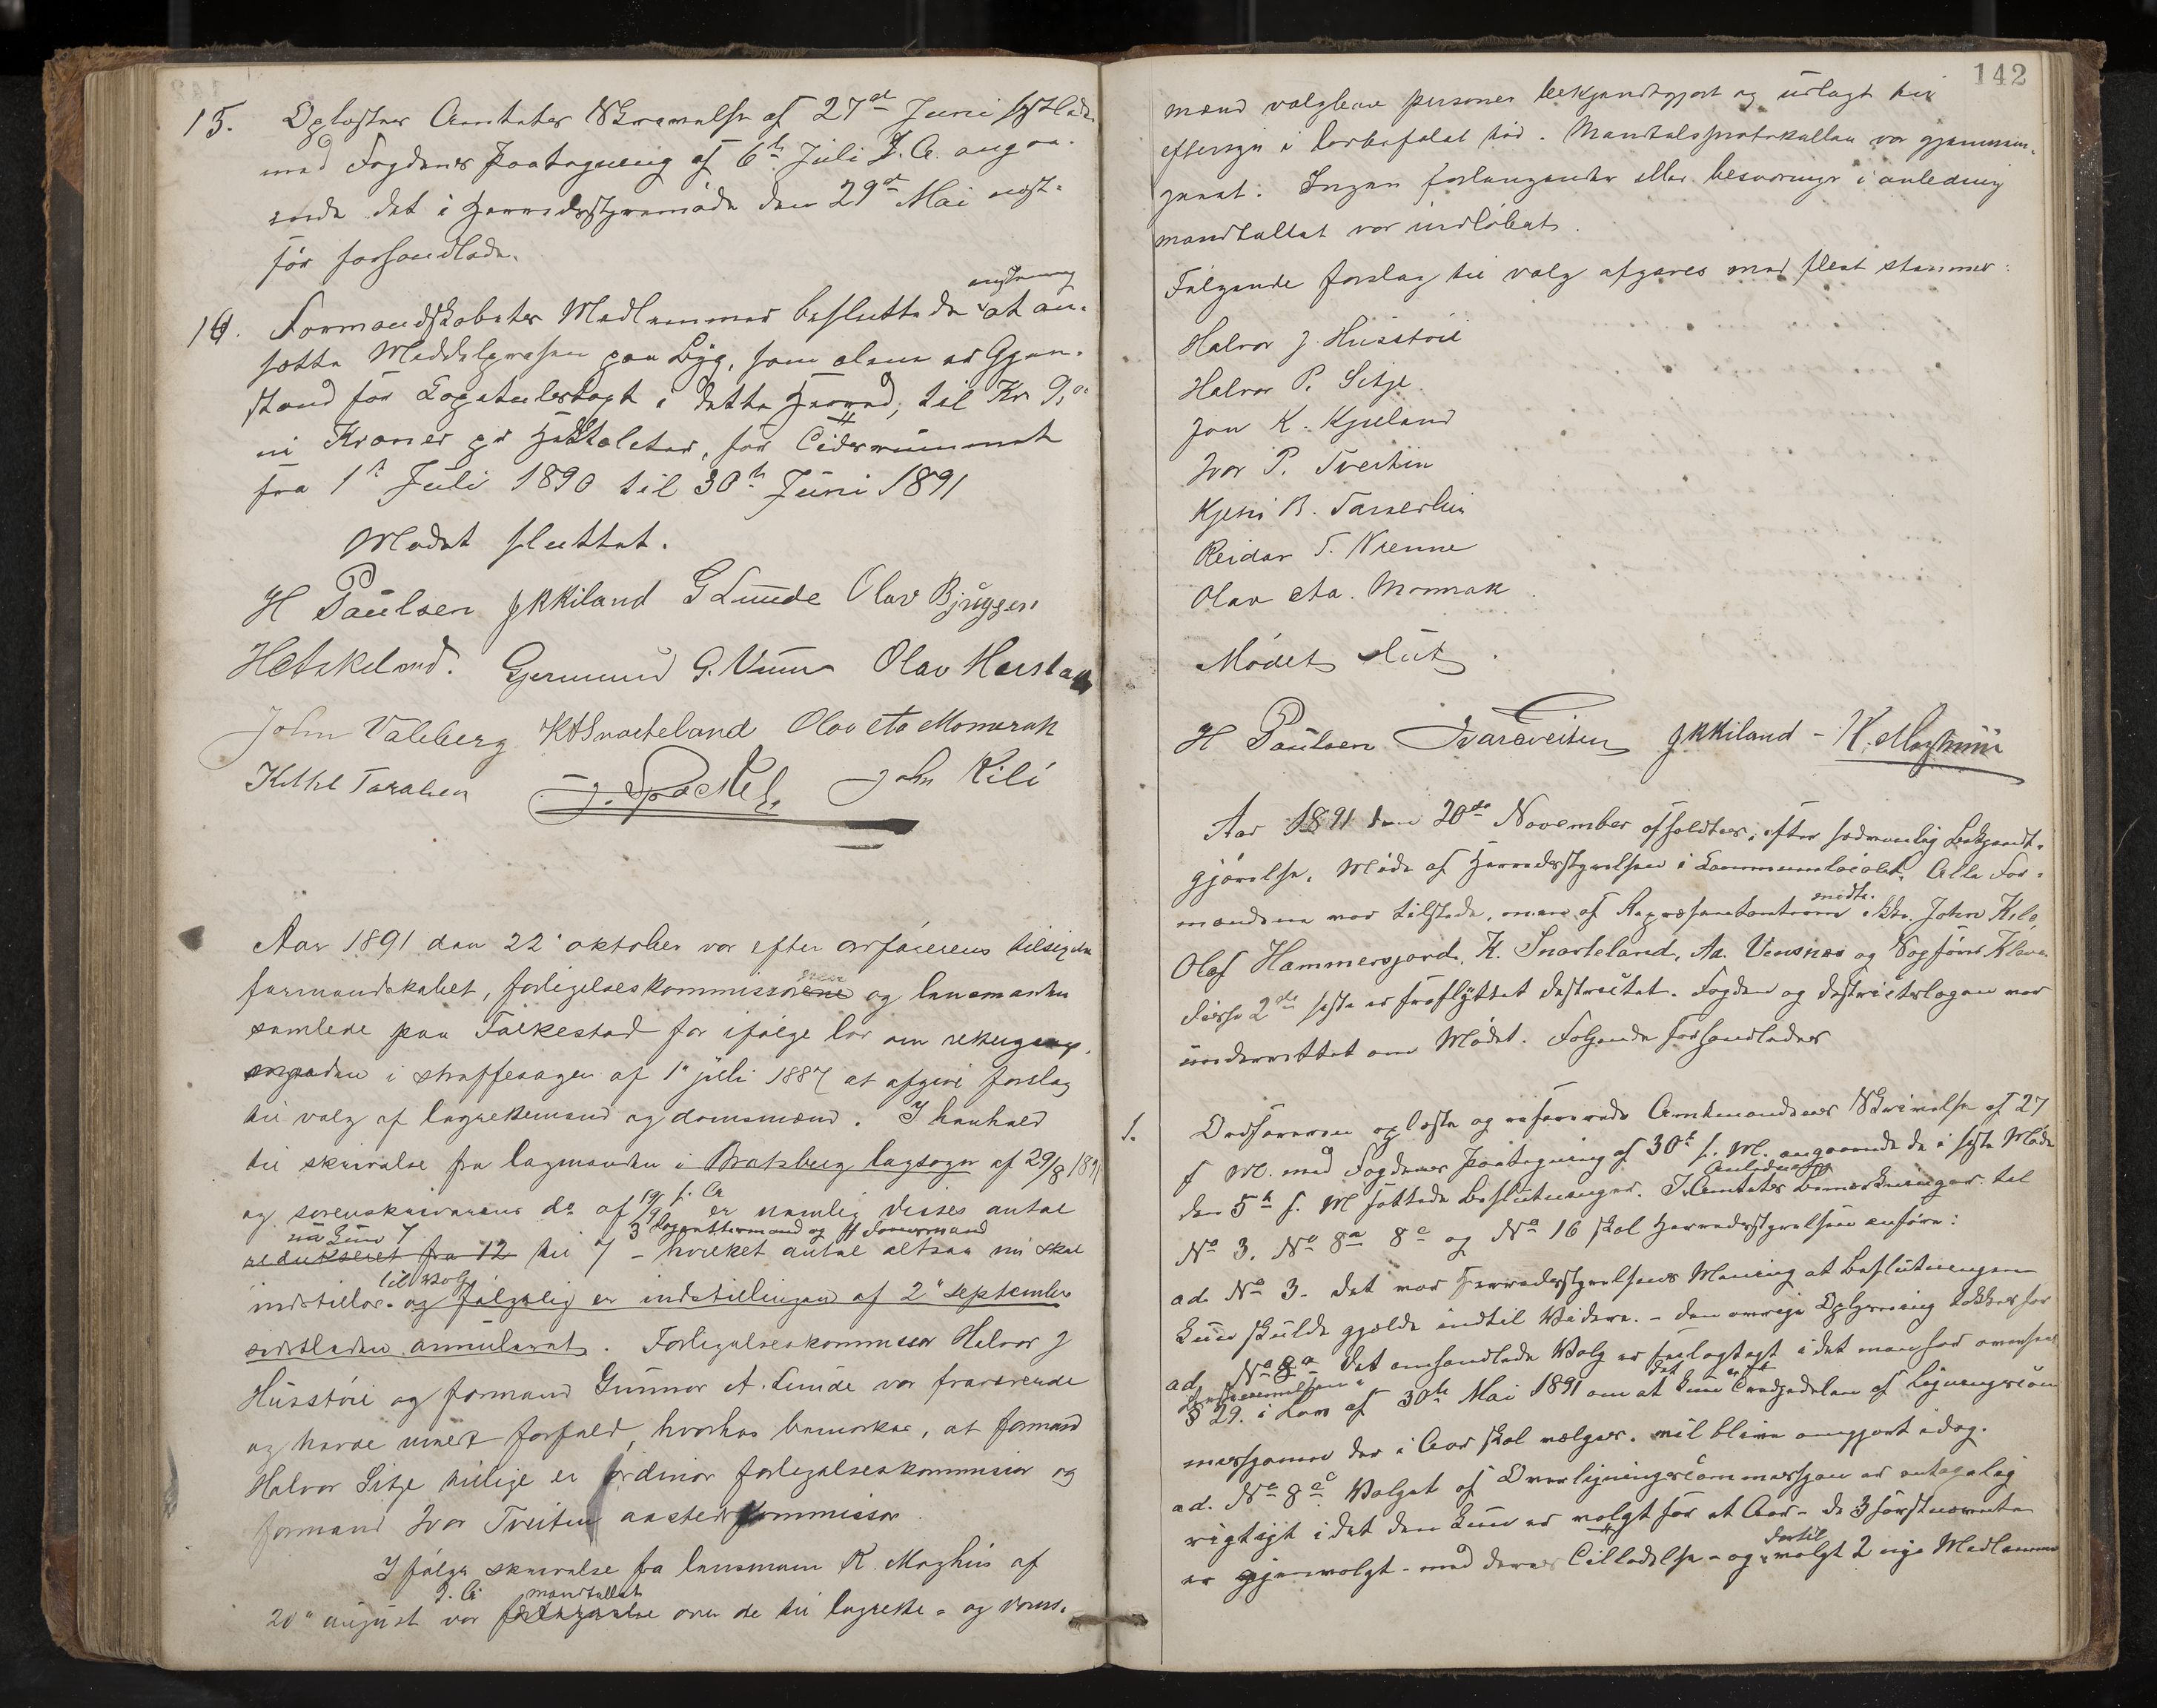 15. Oplæstes Amtets Skrivelse af 27de Juni sidstleden
med Fogdens Paategning af 6te Juli d. A. angaa-
ende det i Herredsstyremøde den 29de Mai næst-
før forhandlede.
16. Formandskabets Medlemmer besluttede at an-
sætte Middelprisen paa Byg, som alene er Gjen-
stand for Kapitelstaxt i dette Herred, til Kr 9,00
ni Kroner pr Hektoliter, for Tidsrummet
fra 1ste Juli 1890 til 30te Juni 1891
Mødet sluttet.
H Paulsen JKKiland G Lunde Olav Bjåggen
HAskeland. Gjermund G. Olav
John Valeberg KASnarteland Olav Aa Momrak
Kittil Taraldsen John Kili
Aar 1891 den 22 oktober var efter ordførerens tilsigelse
formandskabet, forligelseskommissærene og lensmanden
samlede paa Folkestad for ifølge lov om rettergang-
smaaden i straffesager af 1 juli 1887 at afgive forslag
til valg af lagrettemænd og domsmænd. I henhold
til skrivelse fra lagmanden i Bratsberg lagsogn af 29/8 1891
og sorenskriverens do af 19/9 f. Ar er nemlig disses antal
nu kun 7 3 Lagrettemænd og 4 Domsmænd
redukseret fra 12 til 7 – hvilket antal altsaa nu skal
til valg
indstilles - og følgelig er indstillingen af 2 september
sidstleden annuleret. Forligelseskommissær Halvor J
Husstøil og formand Gunnar A. Lunde var fraværende
og havde meldt forfald, hvorhos bemærkes, at formand
Halvor Sitje tillige er ordinær forligelseskommissær og
formand Ivar Tveiten aastedskommissær
Ifølge skrivelse fra lensmann K. Moghus af
d. A. mandtallet
20 august var fortegnelse over de til lagrette- og doms-
142
mænd valgbare personer bekjendtgjort og udlagt til
eftersyn i lovbefalet tid. Mandtalsprotokollen var gjennem-
gaaet. Ingen forlangender eller besværinger i anledning
mandtallet var indløbet.
Følgende forslag til valg afgaves med flest stemmer:
Halvor J. Husstøil
Halvor P. Sitje.
Jon K. Kjeland
Ivar P. Tveiten
Kjetil B.
Reidar T.
Olav Aa. Momrak
Mødet slut.
H Paulsen IvarTveiten JKKiland – K. Moghus
Aar 1891 den 20de November afholdtes, efter sædvanlig Bekjendt-
gjørelse, Møde af Herredsstyrelsen i Kommunelocalet. Alle For-
mændene var tilstede, men af Repræsentanterne mødte ikke John Kile,
Olaf Hammersgard, K. Snarteland, Aa. Vensnæs og Sagfører
disse 2de siste er fraflyttet Distriktet. Fogden og Distriktslægen var
underrettet om Mødet. Følgende forhandledes
1. Ordføreren oplæste og refererede Amtmandens Skrivelse af 27
f M. med Fogdens Paategning af 30te f. M. angaaende de i siste Møde
den 5te f. M fattede Beslutninger. I Anledning Amtets Bemærkninger til
No 3. No 8a 8c og No 16 skal Herredsstyrelsen anføre:
ad. No 3. Det var Herredsstyrelsens Mening at Beslutningen
kun skulde gjælde indtil Videre. – den øvrige Oplysning
ad. No 8a Det omhandlede Valg er feilagtigt idet man har overseet
Bestemmelsen i
§ 29. i Lov af 30te Mai 1891 om at det kun er Trediedelen af Ligningscom
missionen der i Aar skal vælges. vil blive omgjort idag.
ad. No 8c. Valget af Overligningscommissionen er antagelig
rigtigt idet den kun er valgt for et Aar – de 3 førstnævnte
er gjenvalgt – med deres Tilladelse – og dertil valgt 2 nye Medlemmer